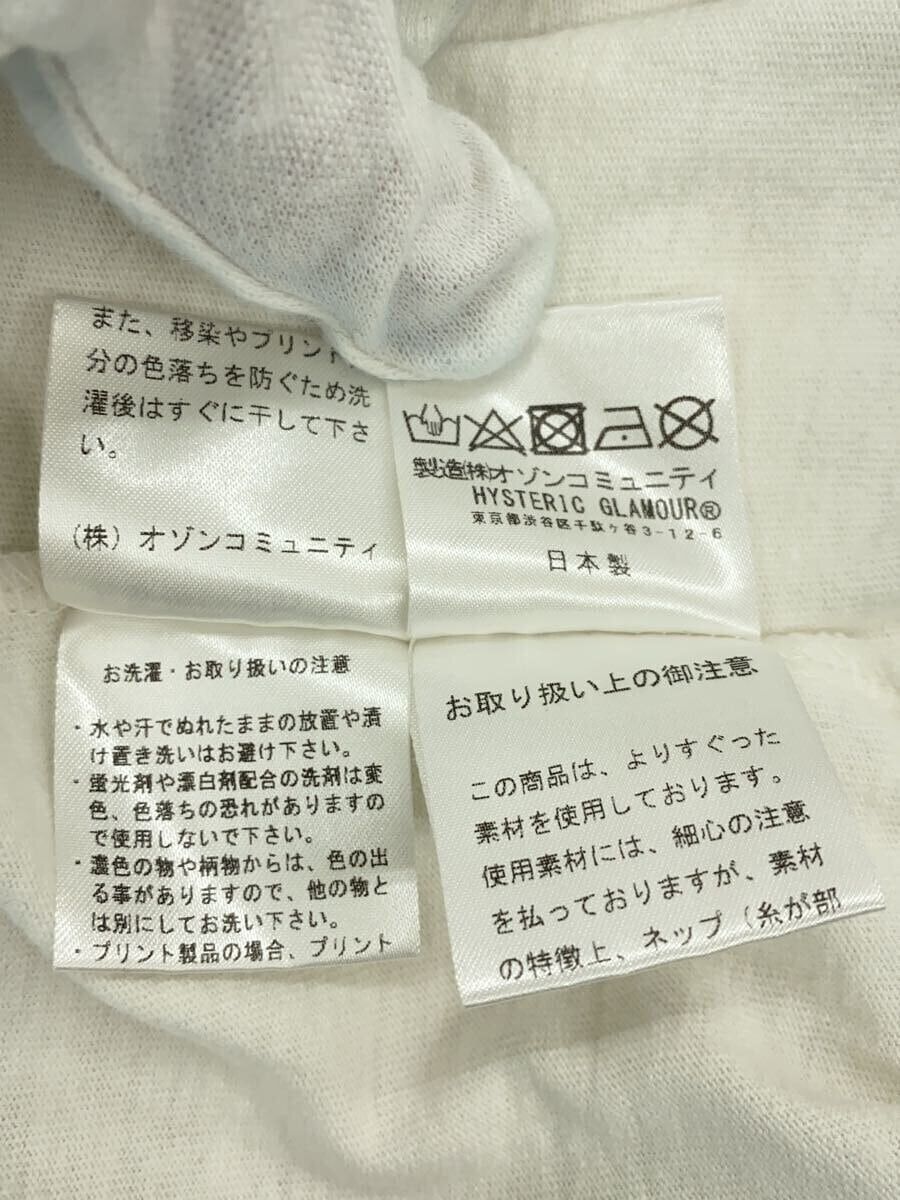 また、移染やプリント
分の色落ちを防ぐため洗
濯後はすぐに干して下さ
い。
(株) オゾンコミュニティ
製造(株)オゾンコミュニティ
HYSTERIC GLAMOUR®
東京都渋谷区千駄ヶ谷3-12-6
日本製
お洗濯・お取り扱いの注意
・水や汗でぬれたままの放置や漬
け置き洗いはお避け下さい。
・蛍光剤や漂白剤配合の洗剤は変
色、色落ちの恐れがありますの
で使用しないで下さい。
・濃色の物や柄物からは、色の出
る事がありますので、他の物と
は別にしてお洗い下さい。
・プリント製品の場合、プリント
お取り扱い上の御注意
この商品は、よりすぐった
素材を使用しております。
使用素材には、細心の注意
を払っておりますが、素材
の特徴上、ネップ（糸が部